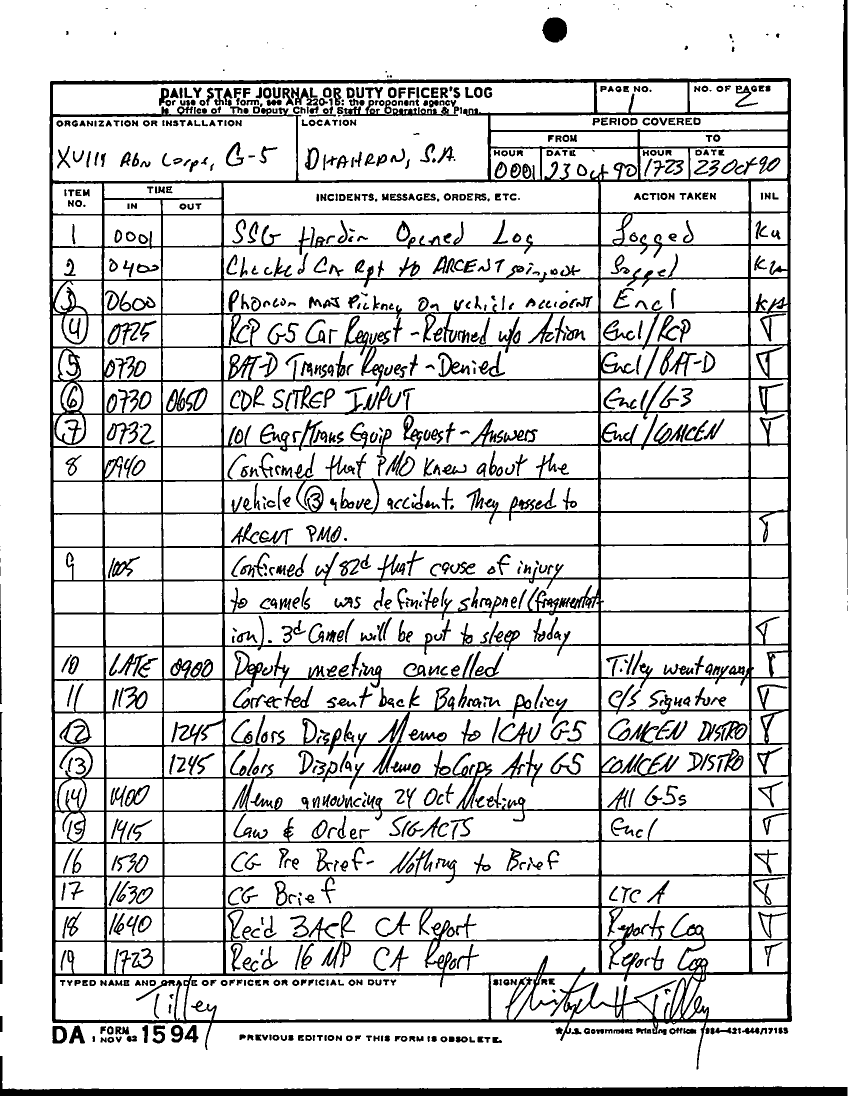 DAILY STAFF JOURNAL OR DUTY OFFICER'S LOG
For use of this form, see AR 220-15; the proponent agency
is Office of The Deputy Chief of Staff for Operations & Plans.
PAGE NO.
1
NO. OF PAGES
2
ORGANIZATION OR INSTALLATION
XVIII Abn Corps, G-5
LOCATION
DHAHRAN, S.A.
PERIOD COVERED
FROM TO
HOUR DATE HOUR DATE
0001 23 Oct 90 1723 23 Oct 90
ITEM NO. TIME IN OUT INCIDENTS, MESSAGES, ORDERS, ETC. ACTION TAKEN INL
1 0001 SSG Hardin Opened Log Logged
2 0400 Checked Rpt to ARCENT
3 0600 Phoncon MAJ Pickney On vehicle Accident Encl
4 0725 RCP G-5 Car Request - Returned w/o Action Encl/RCP T
5 0730 BAT-D Transator Request - Denied Encl/BAT-D T
6 0730 0650 CDR SITREP INPUT Encl/G3 T
7 0732 101 Engr/Trans Equip Request - Answers Encl/COMCEN T
8 0940 Confirmed that PMO knew about the
vehicle (3 above) accident. They passed to
ARCENT PMO. T
9 1005 Confirmed w/ 82d that cause of injury
to camels was definitely shrapnel (fragmentat-
ion). 3d Camel will be put to sleep today T
10 LATE 0900 Deputy meeting cancelled Tilley went anyway T
11 1130 Corrected sent back Bahrain policy C/S Signature T
12 1245 Colors Display Memo to G-5 COMCEN DISTRO T
13 1245 Colors Display Memo to Corps Arty G-5 COMCEN DISTRO T
14 1400 Memo announcing 24 Oct Meeting All G-5s T
15 1415 Law & Order SIGACTS Encl T
16 1530 CG Pre Brief - Nothing to Brief T
17 1630 CG Brief LTC A T
18 1640 Rec'd 3ACR CA Report Reports Log T
19 1723 Rec'd 16 MP CA Report Reports Log T
TYPED NAME AND GRADE OF OFFICER OR OFFICIAL ON DUTY
Tilley
SIGNATURE
Christopher H Tilley
DA FORM 1594
1 NOV 62
PREVIOUS EDITION OF THIS FORM IS OBSOLETE.
★U.S. Government Printing Office: 1984-421-646/17185